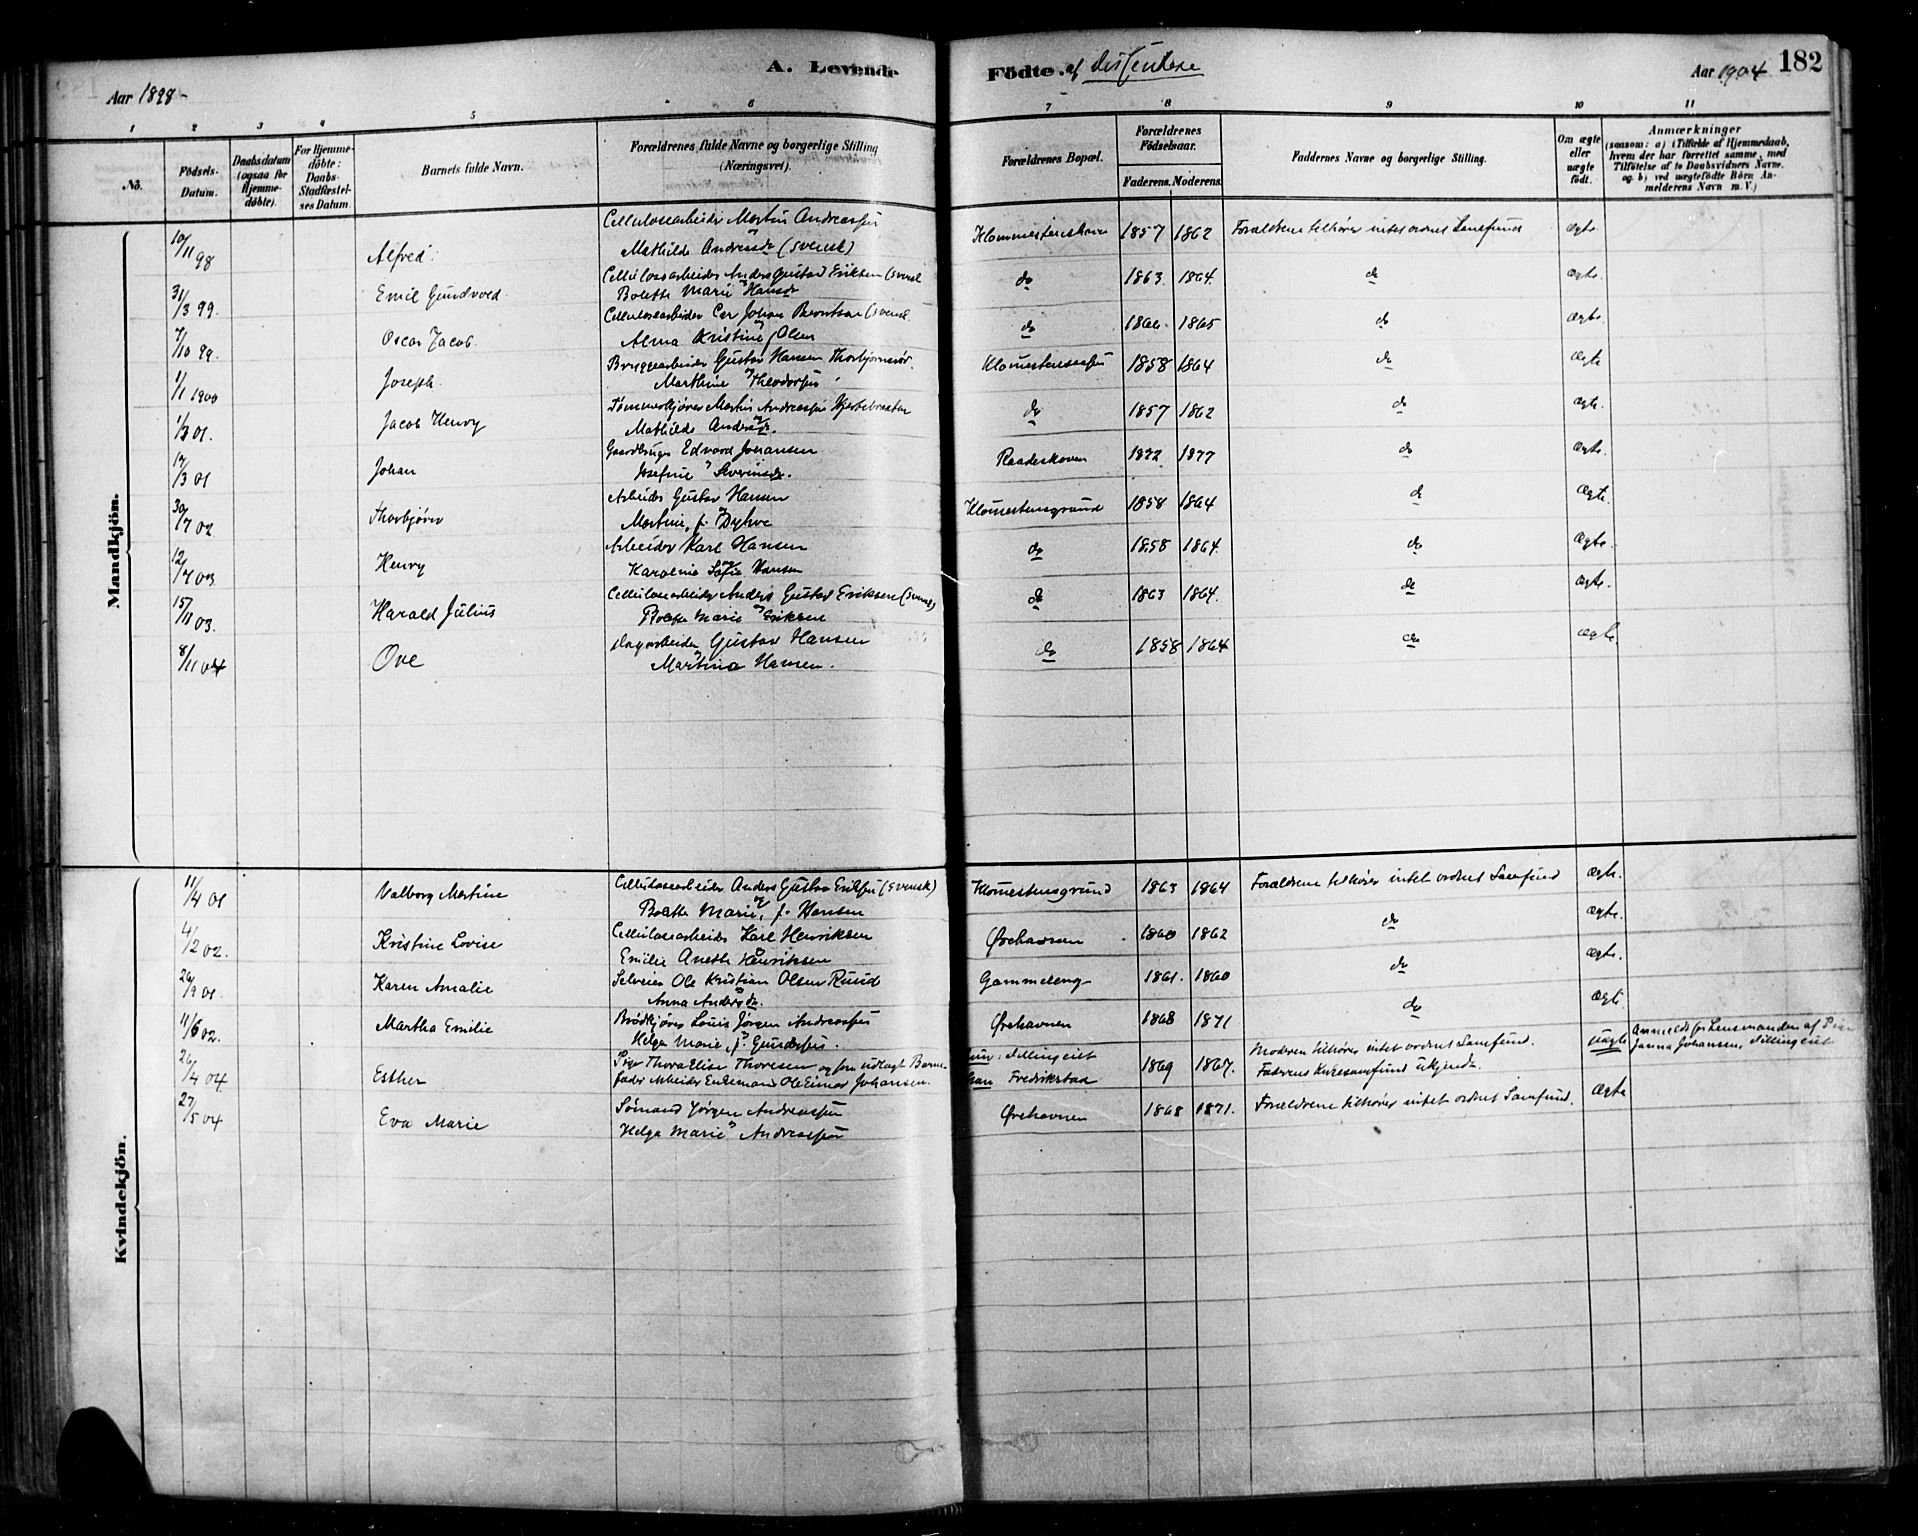 Aar 1898-
A. Levende
Födte. af dissentere
Aar 1904
182
1 2 3 4 5 6 7 8 9 10 11
No.
Födsels-Datum.
Daabsdatum (ogsaa for Hjemme-döbte).
For Hjemme-döbte: Daabs-Stadfæstel-ses Datum.
Barnets fulde Navn.
Forældrenes fulde Navne og borgerlige Stilling (Næringsvei).
Forældrenes Bopæl.
Forældrenes Födselsaar.
Faderens. Moderens.
Faddernes Navne og borgerlige Stilling.
Om ægte eller uægte födt.
Anmærkninger
(saasom: a) (Tilfælde af Hjemmedaab,
hvem der har forrettet samme, med
Tilföielse af to Daabsvidners Navne.
og b) ved uægtefödte Börn An-
melderens Navn m. V.)
Mandkjön.
Cellulosearbeider Martin Andreassen
10/11 98 Alfred. og Mathilde Andreasdr (svensk) 1857 1862 Forældrene tilhører intet ordnet Samfund ægte
Cellulosearbeider Anders Gustav Eriksen (svensk
31/3 99. Emil Gundvold. Bolette Marie Hansdr do 1863. 1864. do ægte.
Cellulosearbeider Johan Berntsen (svensk
7/10 99. Oscar Jacob. Alma Kristine Olsen do 1865 do ægte.
Bryggearbeider Gustav Hansen
1/1 1900 Joseph. Marthine Theodorsen 1858 1864 do Ægte
Tømmerkjører Martin Andreassen
1/3 01. Jacob Henry Mathilde Andersdr. do 1857 1862 do ægte.
Gaardbruger Edvard Johansen
17/3 01 Johan Josefine Severinsdr. Raadeskoven 1877 do Ægte.
Arbeider Gustav Hansen
30/7 02 Thorbjörn Martine, f. Dyhre Klomestensgrund 1858 1864 do Ægte.
Arbeider Karl Hansen
12/7 03 Henry og Karoline Sofie Hansen do 1858 1864. do Ægte.
Cellulosearbeider Anders Gustav Eriksen (svensk)
15/11 03. Harald Julius Bolette Marie Eriksen do 1863 1864. do Ægte.
Dagarbeider Gustav Hansen
8/11 04 Ove Martina Hansen. do 1858 1864 do ægte.
Kvindekjön.
Cellulosearbeider Anders Gustav Eriksen (svensk)
11/4 01 Valborg Martine og Bolette Marie, f. Hansen Klomestensgrund 1863 1864 Forældrene tilhører intet ordnet Samfund ægte.
Cellulosearbeider Karl Henriksen
4/2 02. Kristine Lovise Emilie Anette Henriksen Ørehavnen 1860 1862 do ægte.
Selveier Ole Kristian Olsen Ruud
26/9 01. Karen Amalie Anna Andersdr. Gammeleng 1861. 1860 do ægte.
Brödkjører Louis Jørgen Andreassen
11/6 02. Martha Emilie Helga Marie, f. Gundersen. Ørehavnen 1868 1871 do Ægte
Pige Thora Elise Thoresen og som udlagt Barne-
26/4 04 Esther fader Arbeider Enkemand Ole Einar Johansen.
hun: Tillingeiet
han Fredrikstad
1869 1867.
Moderen tilhører intet ordnet Samfund.
Faderens Kirkesamfund ukjendt.
uægte
Anmeldt for Lensmanden af
Janna Johansen, Tillingeiet
Sømand Jørgen Andreassen
27/5 04 Eva Marie Helga Marie Andreassen Ørehavnen 1868 1871. Forældrene tilhører intet ordnet Samfund. Ægte